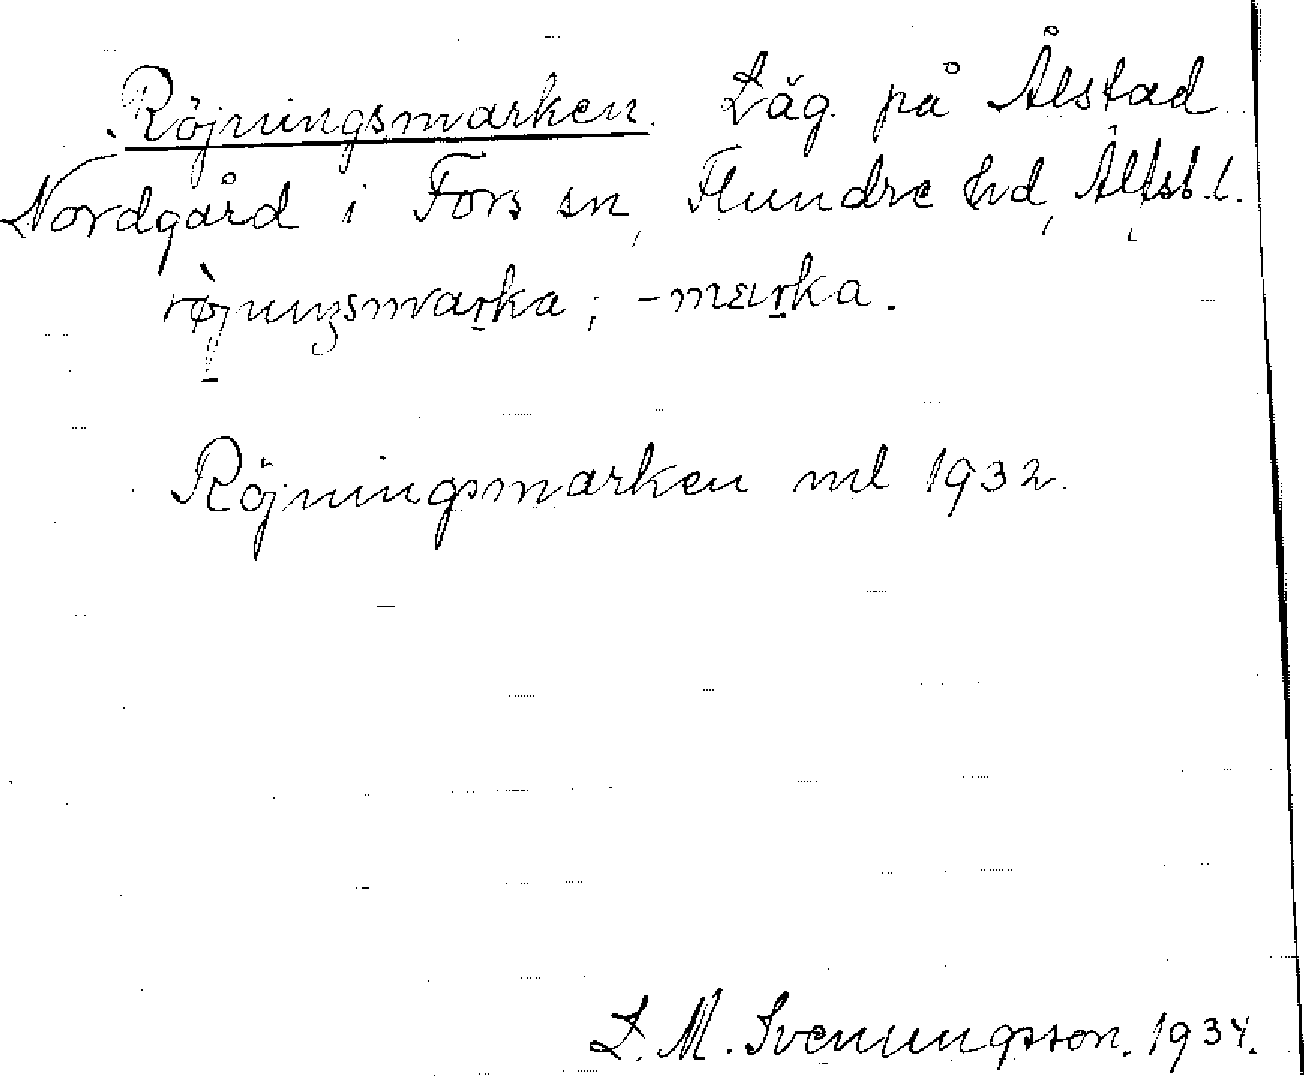 Röjningsmarken. Läg. på Ålstad
Nordgård i Fors sn, Flundre hd, Älfsb. l.
rø̀juŋsmaṟka; -maṟka.
Röjningsmarken ml 1932.
L. M. Svenungsson. 1934.